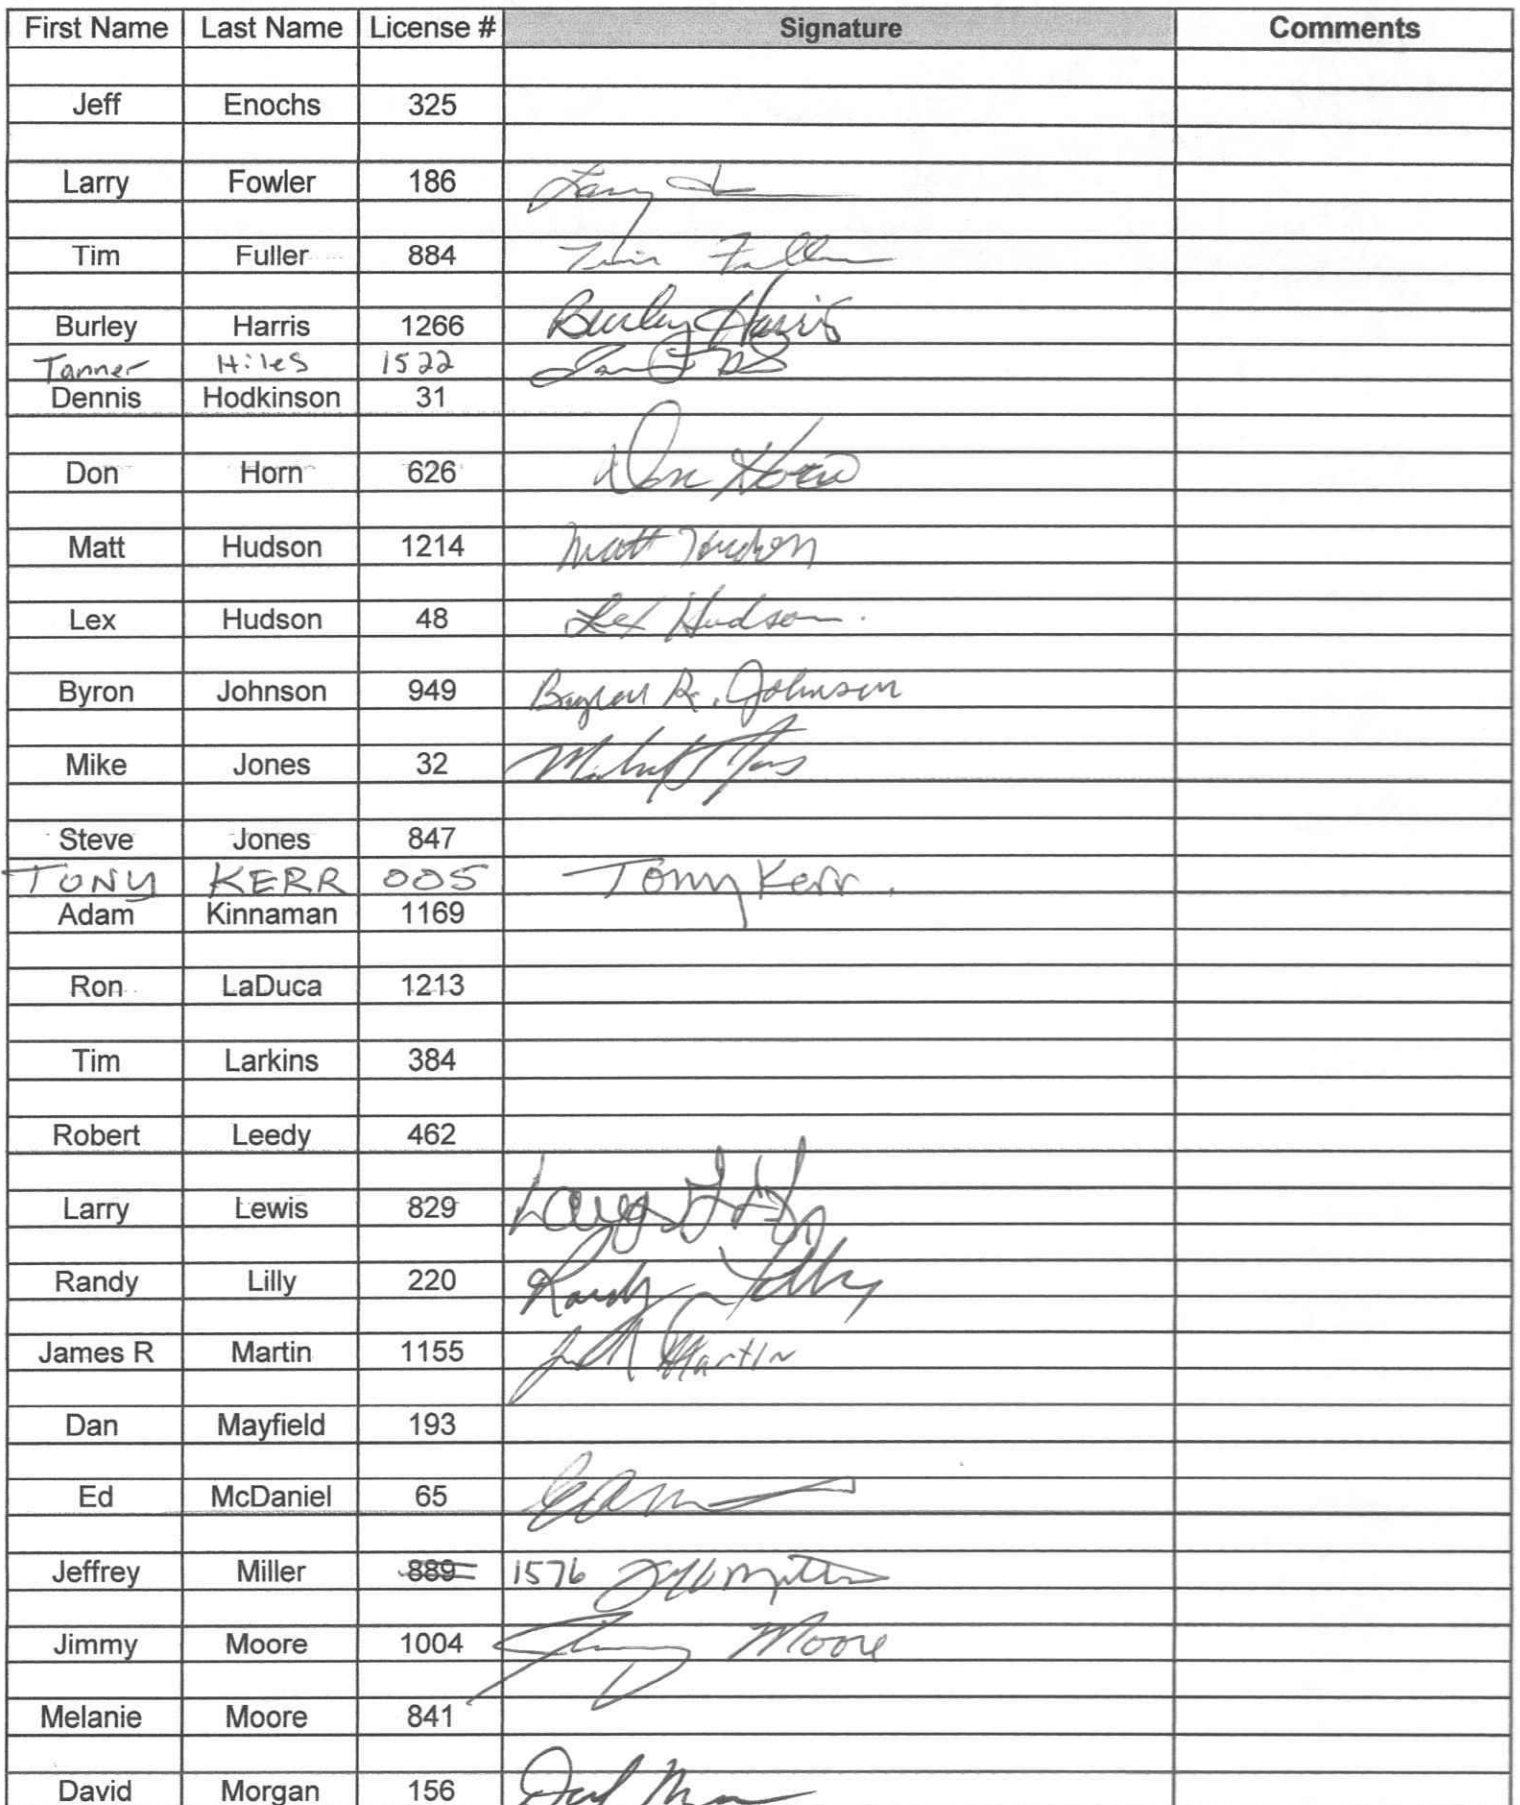 First Name Last Name License # Signature Comments
Jeff Enochs 325
Larry Fowler 186 Larry
Tim Fuller 884 Tim Fuller
Burley Harris 1266 Burley Harris
Tanner Hiles 1522
Dennis Hodkinson 31
Don Horn 626 Don Horn
Matt Hudson 1214 Matt Hudson
Lex Hudson 48 Lex Hudson.
Byron Johnson 949 Byron R. Johnson
Mike Jones 32
Steve Jones 847
TONY KERR 005 Tony Kerr.
Adam Kinnaman 1169
Ron LaDuca 1213
Tim Larkins 384
Robert Leedy 462
Larry Lewis 829 Larry
Randy Lilly 220 Randy Lilly
James R Martin 1155 Martin
Dan Mayfield 193
Ed McDaniel 65
Jeffrey Miller 889 1576
Jimmy Moore 1004 Jimmy Moore
Melanie Moore 841
David Morgan 156